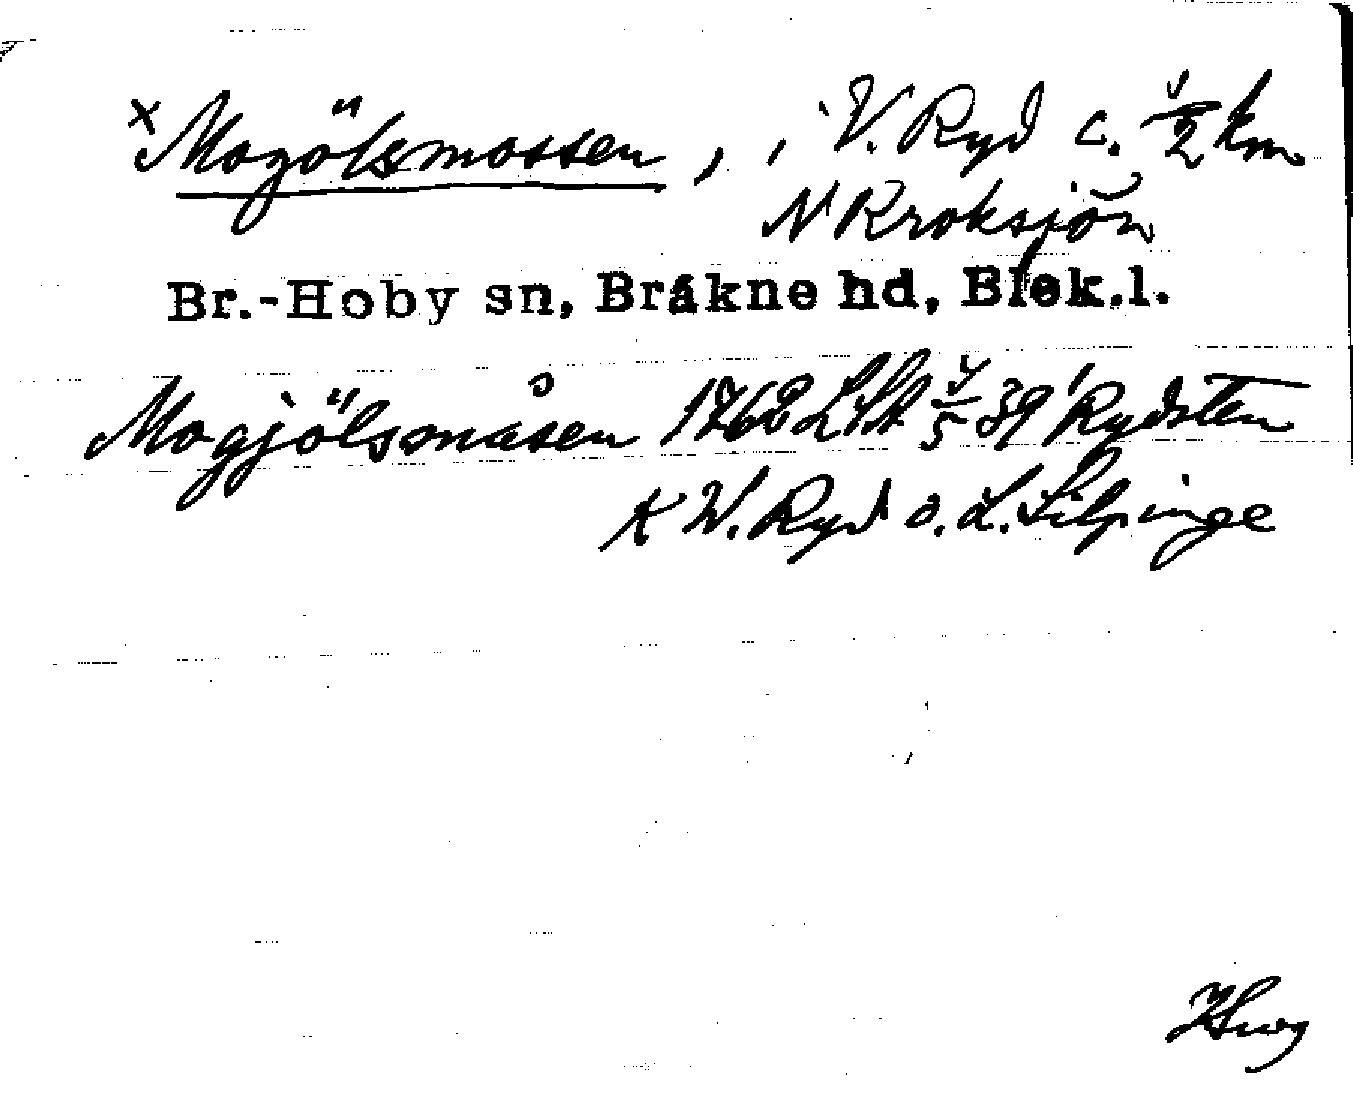 × Mogölsmossen, i V. Ryd c. ½ km
N Kroksjön
Br.-Hoby sn, Bräkne hd, Blek.l.
Mogjölsmåsen 1762 LSA 39 Rydsten
K W. Ryd o. L. Silpinge